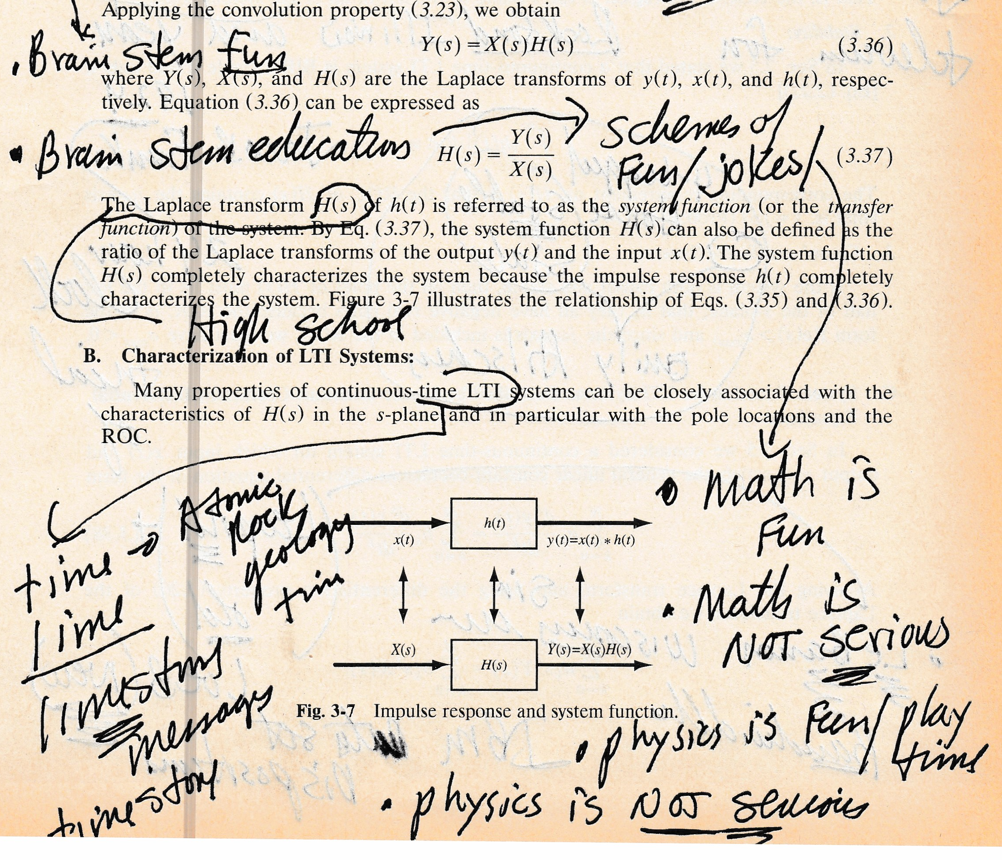 Applying the convolution property (3.23), we obtain
Y(s) = X(s)H(s) (3.36)
• Brain stem fun
where Y(s), X(s), and H(s) are the Laplace transforms of y(t), x(t), and h(t), respec-
tively. Equation (3.36) can be expressed as
• Brain stem education
H(s) = Y(s)/X(s) (3.37)
schemes of
Fun/jokes/
The Laplace transform H(s) of h(t) is referred to as the system function (or the transfer
function) of the system. By Eq. (3.37), the system function H(s) can also be defined as the
ratio of the Laplace transforms of the output y(t) and the input x(t). The system function
H(s) completely characterizes the system because the impulse response h(t) completely
characterizes the system. Figure 3-7 illustrates the relationship of Eqs. (3.35) and (3.36).
High school
B. Characterization of LTI Systems:
Many properties of continuous-time LTI systems can be closely associated with the
characteristics of H(s) in the s-plane and in particular with the pole locations and the
ROC.
time → Atomic
Rock
geology
time
lime
messages
time story
x(t)
h(t)
y(t)=x(t) * h(t)
X(s)
H(s)
Y(s)=X(s)H(s)
Fig. 3-7 Impulse response and system function.
• math is
Fun
• Math is
NOT serious
• physics is Fun/play
time
• physics is NOT serious